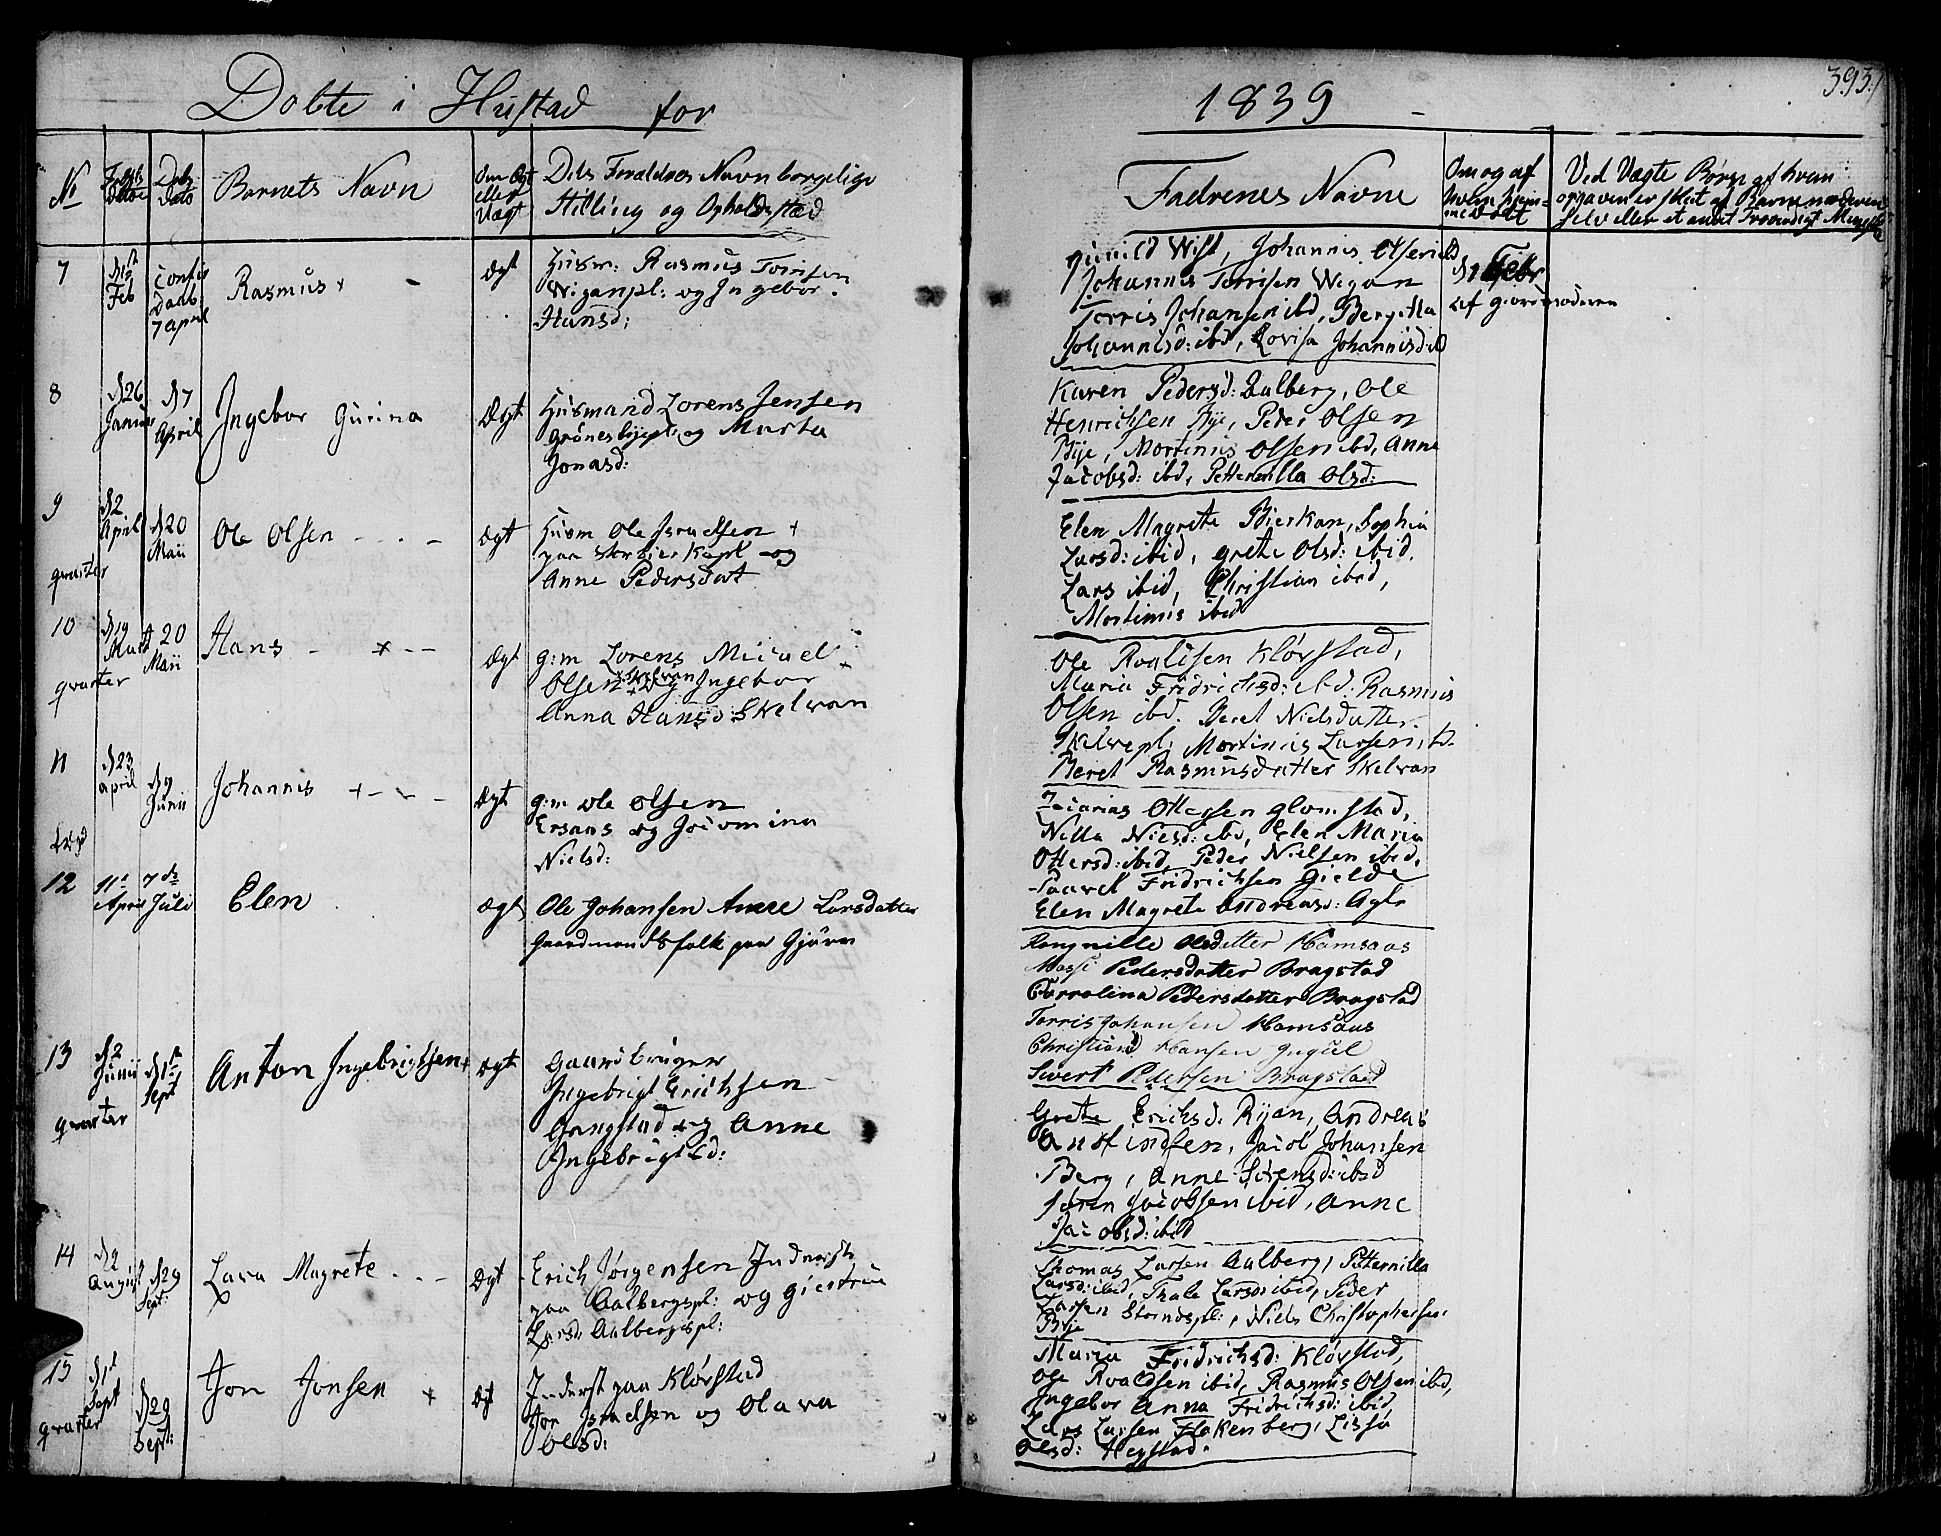 Døbte i Hustad for
1839
393
No
Fødsels Datoe
Døbs Dato
Barnets Navn
Om Ægt eller Uægt
Dets Forældres Navn borgelige
Stilling og Opholdsstæd
Fadrenes Navne
Om og af
hvem hjem-
medøbt
Ved Uægte Børn af hvem
opgaven er skeet af Barnemoderen
selv eller et andet Troværdigt Menniske
7
d 12t
Feb
Confir
Daab:
7 april
Rasmus +
Ægt
Husm: Rasmus Torrisen
Wiganpl: og Ingebor
Hansd:
Gunild Wist, Johannis Olsen ibid
Johannis Torrisen Wigan
Torris Johansen ibd, Beregitta
Johannisd: ibd, Lovisa Johannisd ibd
d 1 Febr
af Giordmoderen
8
d 26
Januar
d 7
April
Ingebor Gurina
Ægt
Husmand Lorens Jensen
Grønesbyepl og Marta
Jonasd:
Karen Pedersd: Dalberg, Ole
Henrichsen Bye, Peder Olsen
Bye, Mortinus Olsen ibd, Anne
Jacobsd: ibd, Petternilla Olsd:
9
d 2
April
d 20
Maii
qvarter
Ole Olsen
Ægt
Husm Ole Israelsen +
paa Storbierkapl og
Anne Pedersdat
Elen Magrete Bierkan, Sophia
Larsd: ibid, Grete Olsd: ibid.
Lars ibid, Christian ibid,
Mortinus ibid
10
d 19
Mart
d 20
Maii
qvarter
Hans - + - -
Ægt
g:m Lorens Micael
Olsen Skelvan og Ingebor
Anna Hansd: Skelvan
Ole Roaldsen Kløvstad,
Maria Fridrichsd: ibd: Rasmus
Olsen ibd. Beret Nielsdatter
Skelvepl: Mortinus Larsen ib.
Beret Rasmusdatter Skelvan
11
d 23
april
d 9
Junii
Johannis +
Ægt
g:m Ole Olsen
Ersaas og Jocomina
Nielsd:
Zacarias Ottesen Glomstad,
Nilla Nielsd: ibd, Elen Maria
Ottersd: ibid, Peder Nielsen ibid,
Paavel Fridrichsen Gielde
Elen Magrete Andreasd: Agle
12
11te
April
7de
Juli
Elen
Ægt
Ole Johansen Anne Larsdatter
Gaardmandsfolk paa Gjørin
Rangnille Olsdatter Hamsaas
Massi Pedersdatter Bragstad
Carrolina Pedersdatter Bragstad
Torris Johansen Hamsaas
Christian Hansen
Sivert Pedersen Bragstad
13
d 2
Junii
d 1te
Sept
qvarter
Anton Ingebrigtsen +
Ægt
Gaardbruger
Ingebrigt Erichsen
Gangstad og Anne
Ingebrigtsd:
Grete Erichsd: Ryan, Andreas
Anfindsen, Jacob Johansen
Berg, Anne Sørensd: ibid
Søren Jacobsen ibid, Anne
Jacobsd: ibid
14
d 2
August
d 29
Sept:
Lava Magrete
Ægt
Erich Jørgensen Inderst
paa Aalbergspl: og Giertrue
Larsd: Aalbergspl:
Thomas Larsen Aalberg, Petternilla
Larsd: ibid, Thale Larsd: ibid, Peder
Larsen Strandspl:, Niels Christophersen
Bye
15
d 1t
Sept
d 29
Sept:
qvarter
Jon Jonsen +
Ægt
Inderst paa Kløvstad
Jon Israelsen og Olava
Olsd:
Maria Fridrichsd: Kløvstad,
Ole Roaldsen ibid, Rasmus Olsen ibid,
Ingebor Anna Fridrichsd: ibid,
Lars Larsen Flakenberg, Lissa
Olsd: Hegstad.